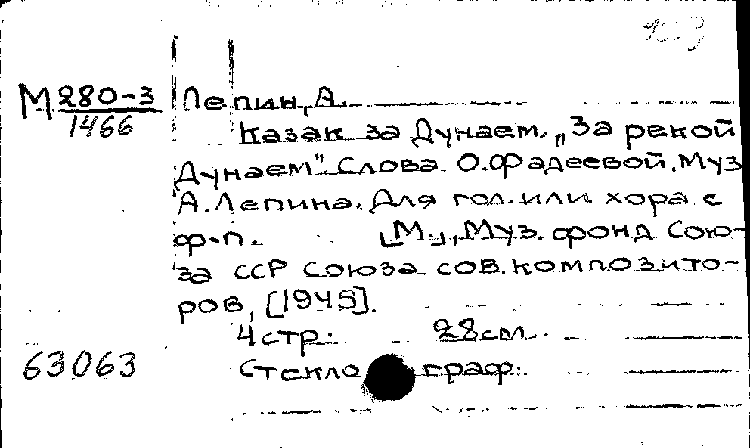 М 280-3
1466
Лепин, А.
Казак за Дунаем. „За рекой
Дунаем" Слова О. Фадеевой. Муз
А. Лепина. Для гол. или хора с
ф-п. [М.], Муз. фонд Сою-
за ССР Союза сов. композито-
ров, [1945].
4 стр. 28 см.
63063
Стеклограф.